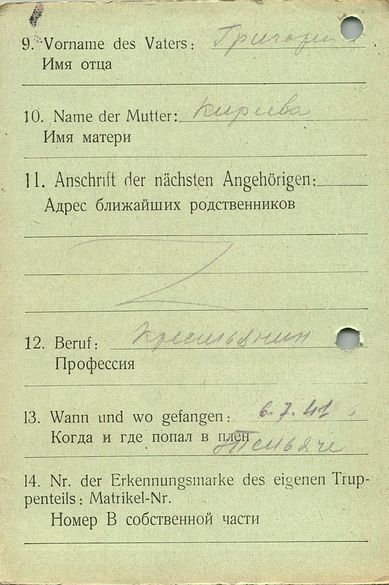 9. Vorname des Vaters: Григорий
Имя отца
10. Name der Mutter: Киреева
Имя матери
11. Anschrift der nächsten Angehörigen:
Адрес ближайших родственников
12. Beruf: Крестьянин
Профессия
13. Wann und wo gefangen: 6.7.41
Когда и где попал в плен
14. Nr. der Erkennungsmarke des eigenen Trup-
penteils: Matrikel-Nr.
Номер В собственной части